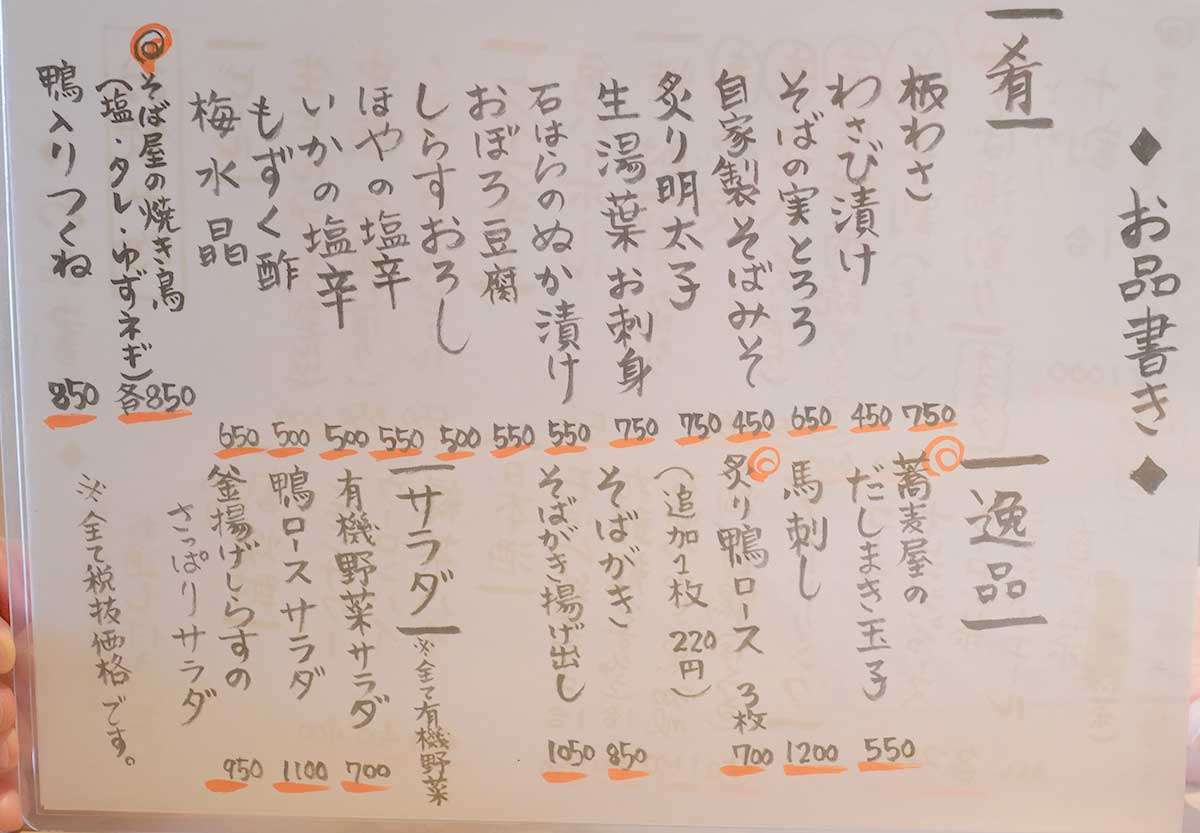 ◆お品書き◆
肴
板わさ 750
わさび漬け 450
そばの実とろろ 650
自家製そばみそ 450
炙り明太子 750
生湯葉お刺身 750
石はらのぬか漬け 550
おぼろ豆腐 550
しらすおろし 500
ほやの塩辛 550
いかの塩辛 500
もずく酢 500
梅水晶 650
◎そば屋の焼き鳥
(塩・タレ・ゆずネギ)各850
鴨入りつくね 850
逸品
◎蕎麦屋の
だしまき玉子 550
馬刺し 1200
◎炙り鴨ロース 3枚 700
(追加1枚 220円)
そばがき 850
そばがき揚げ出し 1050
サラダ ※全て有機野菜
有機野菜サラダ 700
鴨ロースサラダ 1100
釜揚げしらすの 950
さっぱりサラダ
※全て税抜価格です。